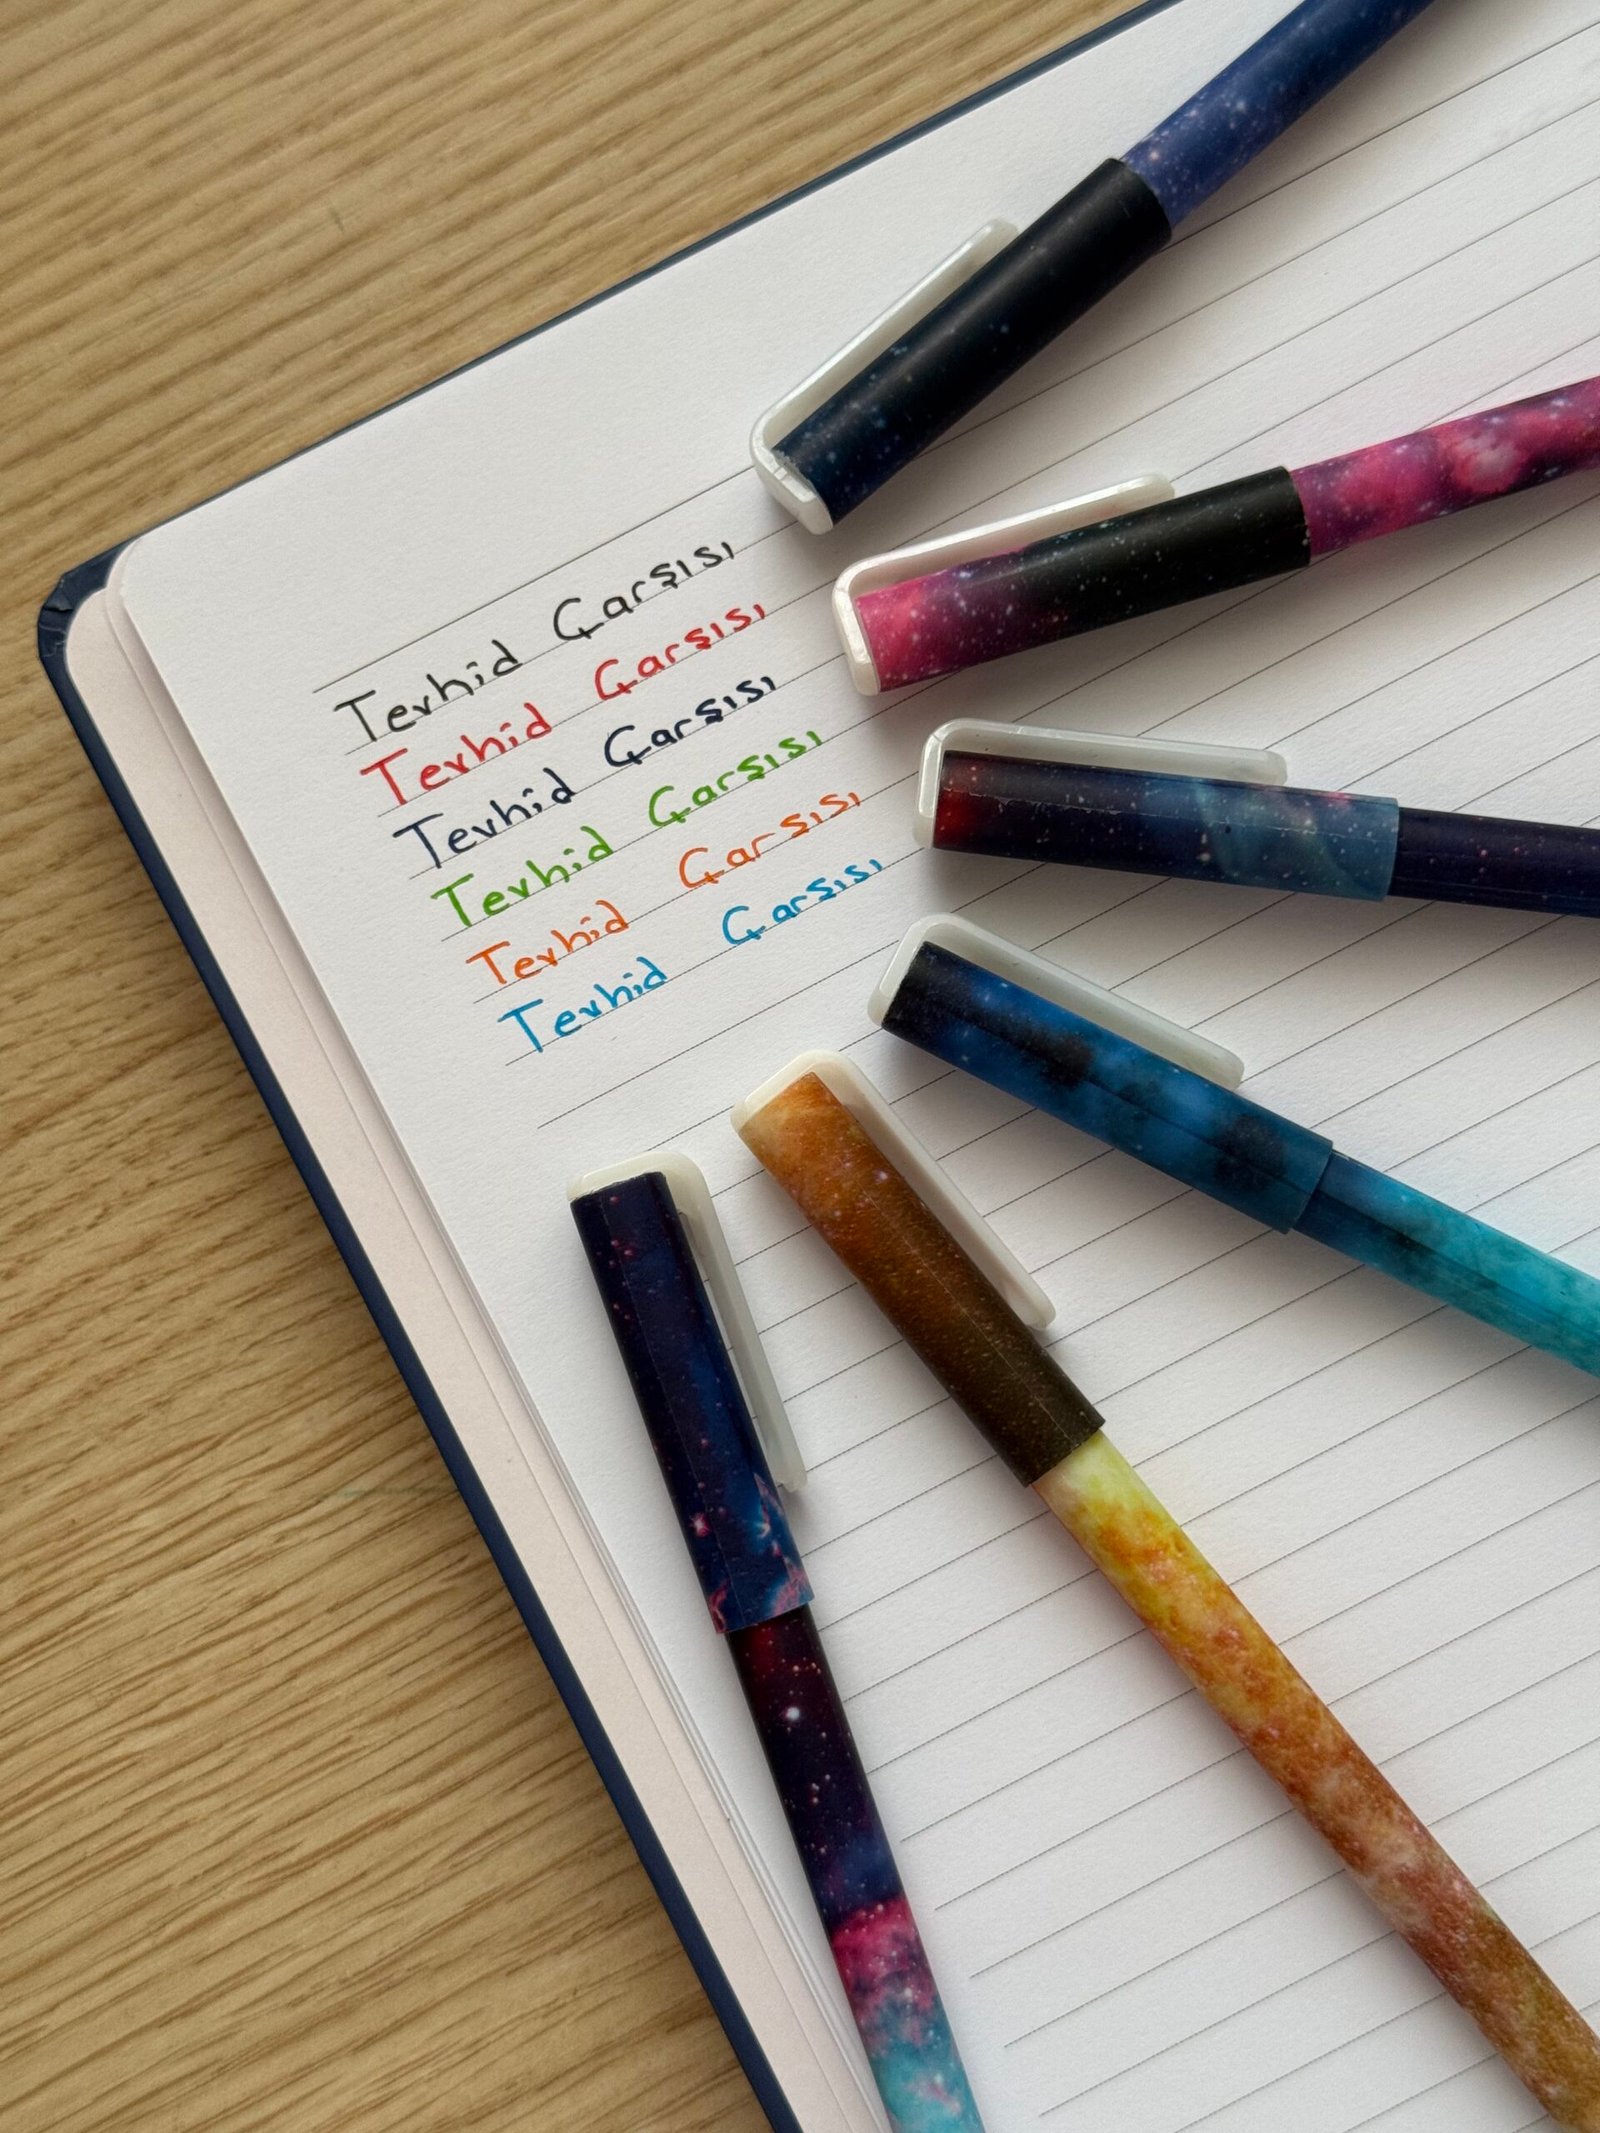 Tevhid Çarşısı
Tevhid Çarşısı
Tevhid Çarşısı
Tevhid Çarşısı
Tevhid Çarşısı
Tevhid Çarşısı